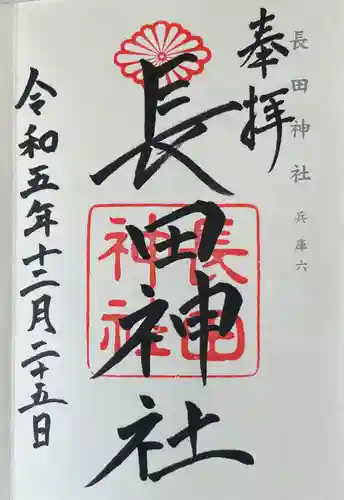 長田神社 兵庫六
奉拝
長田神社
長田
神社
令和五年十二月二十五日